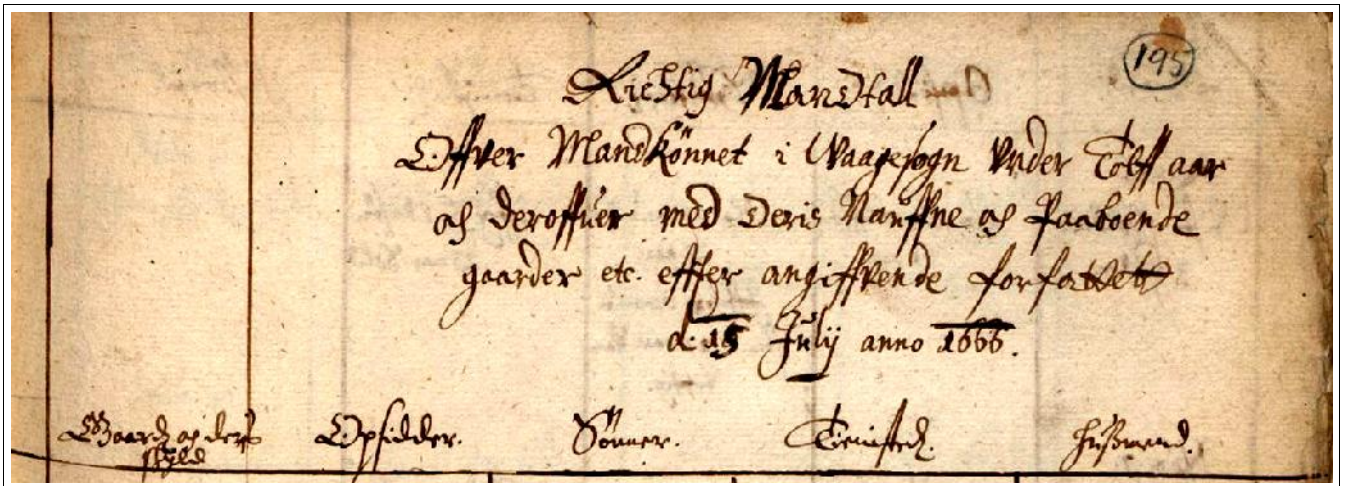 195
Richtig Mandtall
Offver Mandkönnet i Waagesogn Vnder Tolff aar
och deroffuer med Deris Nauffne och Paaboende
gaarder etc. effter angiffvende forfattett
d. 15 Julij anno 1666.
Gaard och ders Opsidder. Sönner. Tienisted. Hußmend.
skyld